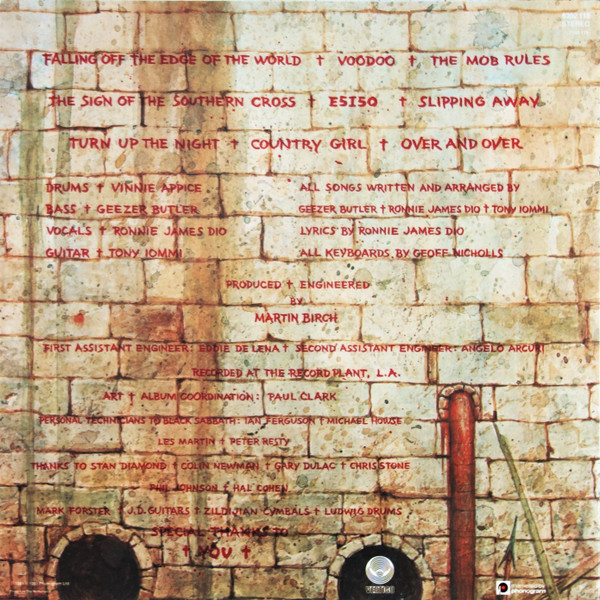 6302 119
STEREO
FALLING OFF THE EDGE OF THE WORLD † VOODOO † THE MOB RULES
THE SIGN OF THE SOUTHERN CROSS † E5150 † SLIPPING AWAY
TURN UP THE NIGHT † COUNTRY GIRL † OVER AND OVER
DRUMS † VINNIE APPICE
BASS † GEEZER BUTLER
VOCALS † RONNIE JAMES DIO
GUITAR † TONY IOMMI
ALL SONGS WRITTEN AND ARRANGED BY
GEEZER BUTLER † RONNIE JAMES DIO † TONY IOMMI
LYRICS BY RONNIE JAMES DIO
ALL KEYBOARDS BY GEOFF NICHOLLS
PRODUCED † ENGINEERED
BY
MARTIN BIRCH
FIRST ASSISTANT ENGINEER: EDDIE DE LENA † SECOND ASSISTANT ENGINEER: ANGELO ARCURI
RECORDED AT THE RECORD PLANT, L.A.
ART † ALBUM COORDINATION: PAUL CLARK
PERSONAL TECHNICIANS TO BLACK SABBATH: IAN FERGUSON † MICHAEL HOWSE
LES MARTIN † PETER RESTY
THANKS TO STAN DIAMOND † COLIN NEWMAN † GARY DULAC † CHRIS STONE
PHIL JOHNSON † HAL COHEN
MARK FORSTER † J.D. GUITARS † ZILDJIAN CYMBALS † LUDWIG DRUMS
SPECIAL THANKS TO
† YOU †
VERTIGO
marketed by
phonogram